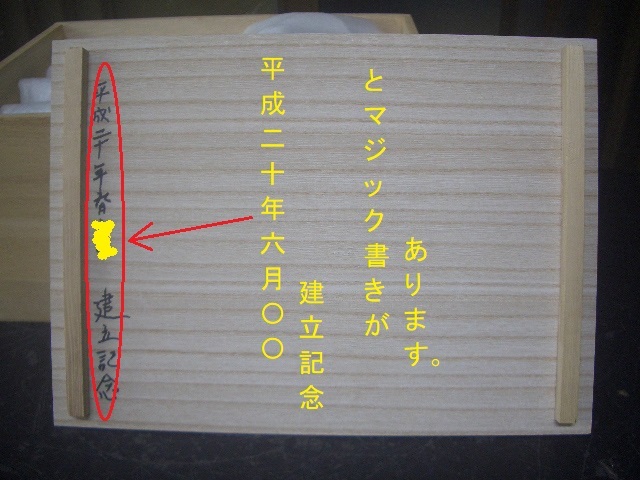 平成二十年六月
建立記念
平成二十年六月〇〇
建立記念
とマジック書きが
あります。